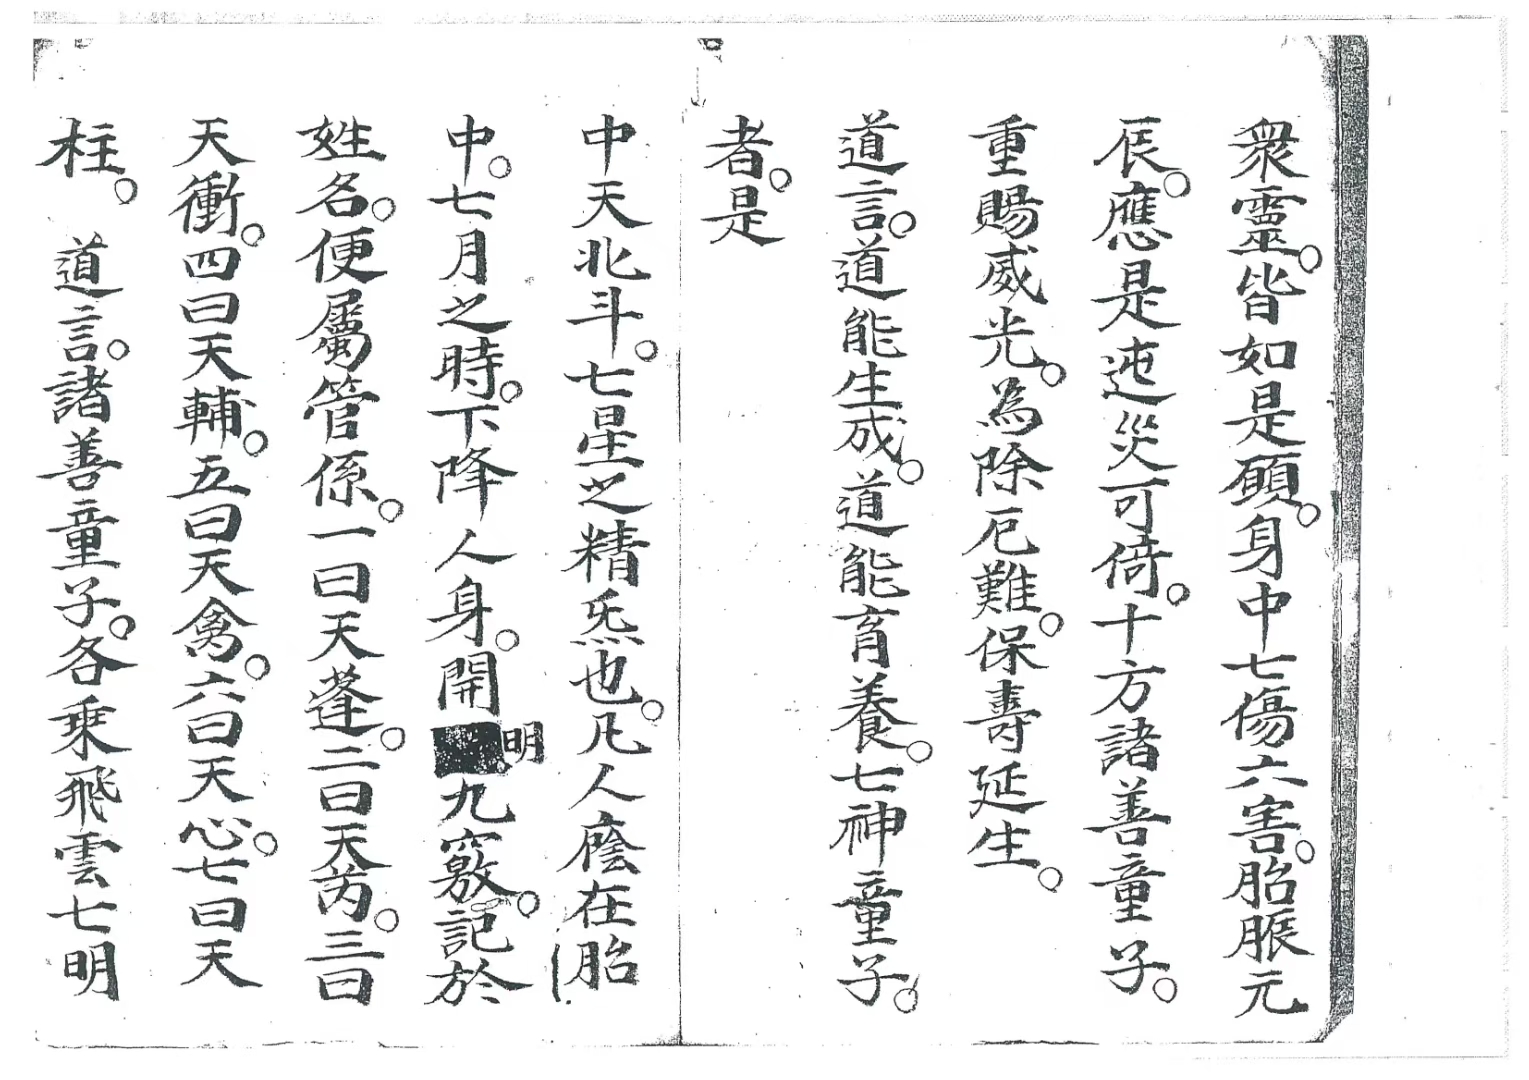 衆靈。皆如是願。身中七傷六害。胎脤元
辰。應是迍災可偹。十方諸善童子。
重賜威光。為除厄難。保壽延生。
道言。道能生成。道能育養。七神童子。
者。是
中天北斗。七星之精炁也。凡人廕在胎
中。七月之時。下降人身。開明九竅。記於
姓名。便屬管係。一曰天蓬。二曰天芮。三曰
天衝。四曰天輔。五曰天禽。六曰天心。七曰天
柱。 道言。諸善童子。各乗飛雲七明